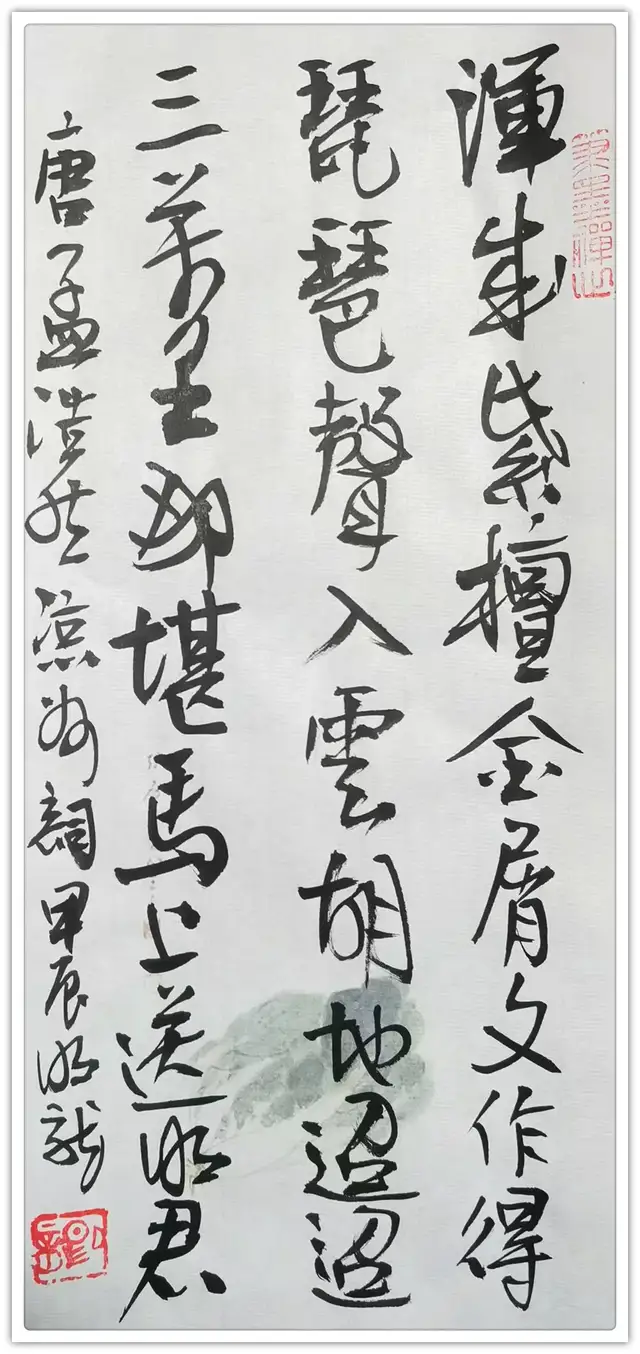 渾成紫檀金屑文作得
琵琶聲入雲胡地迢迢
三萬里那堪馬上送明君
唐孟浩然涼州詞甲辰明龍